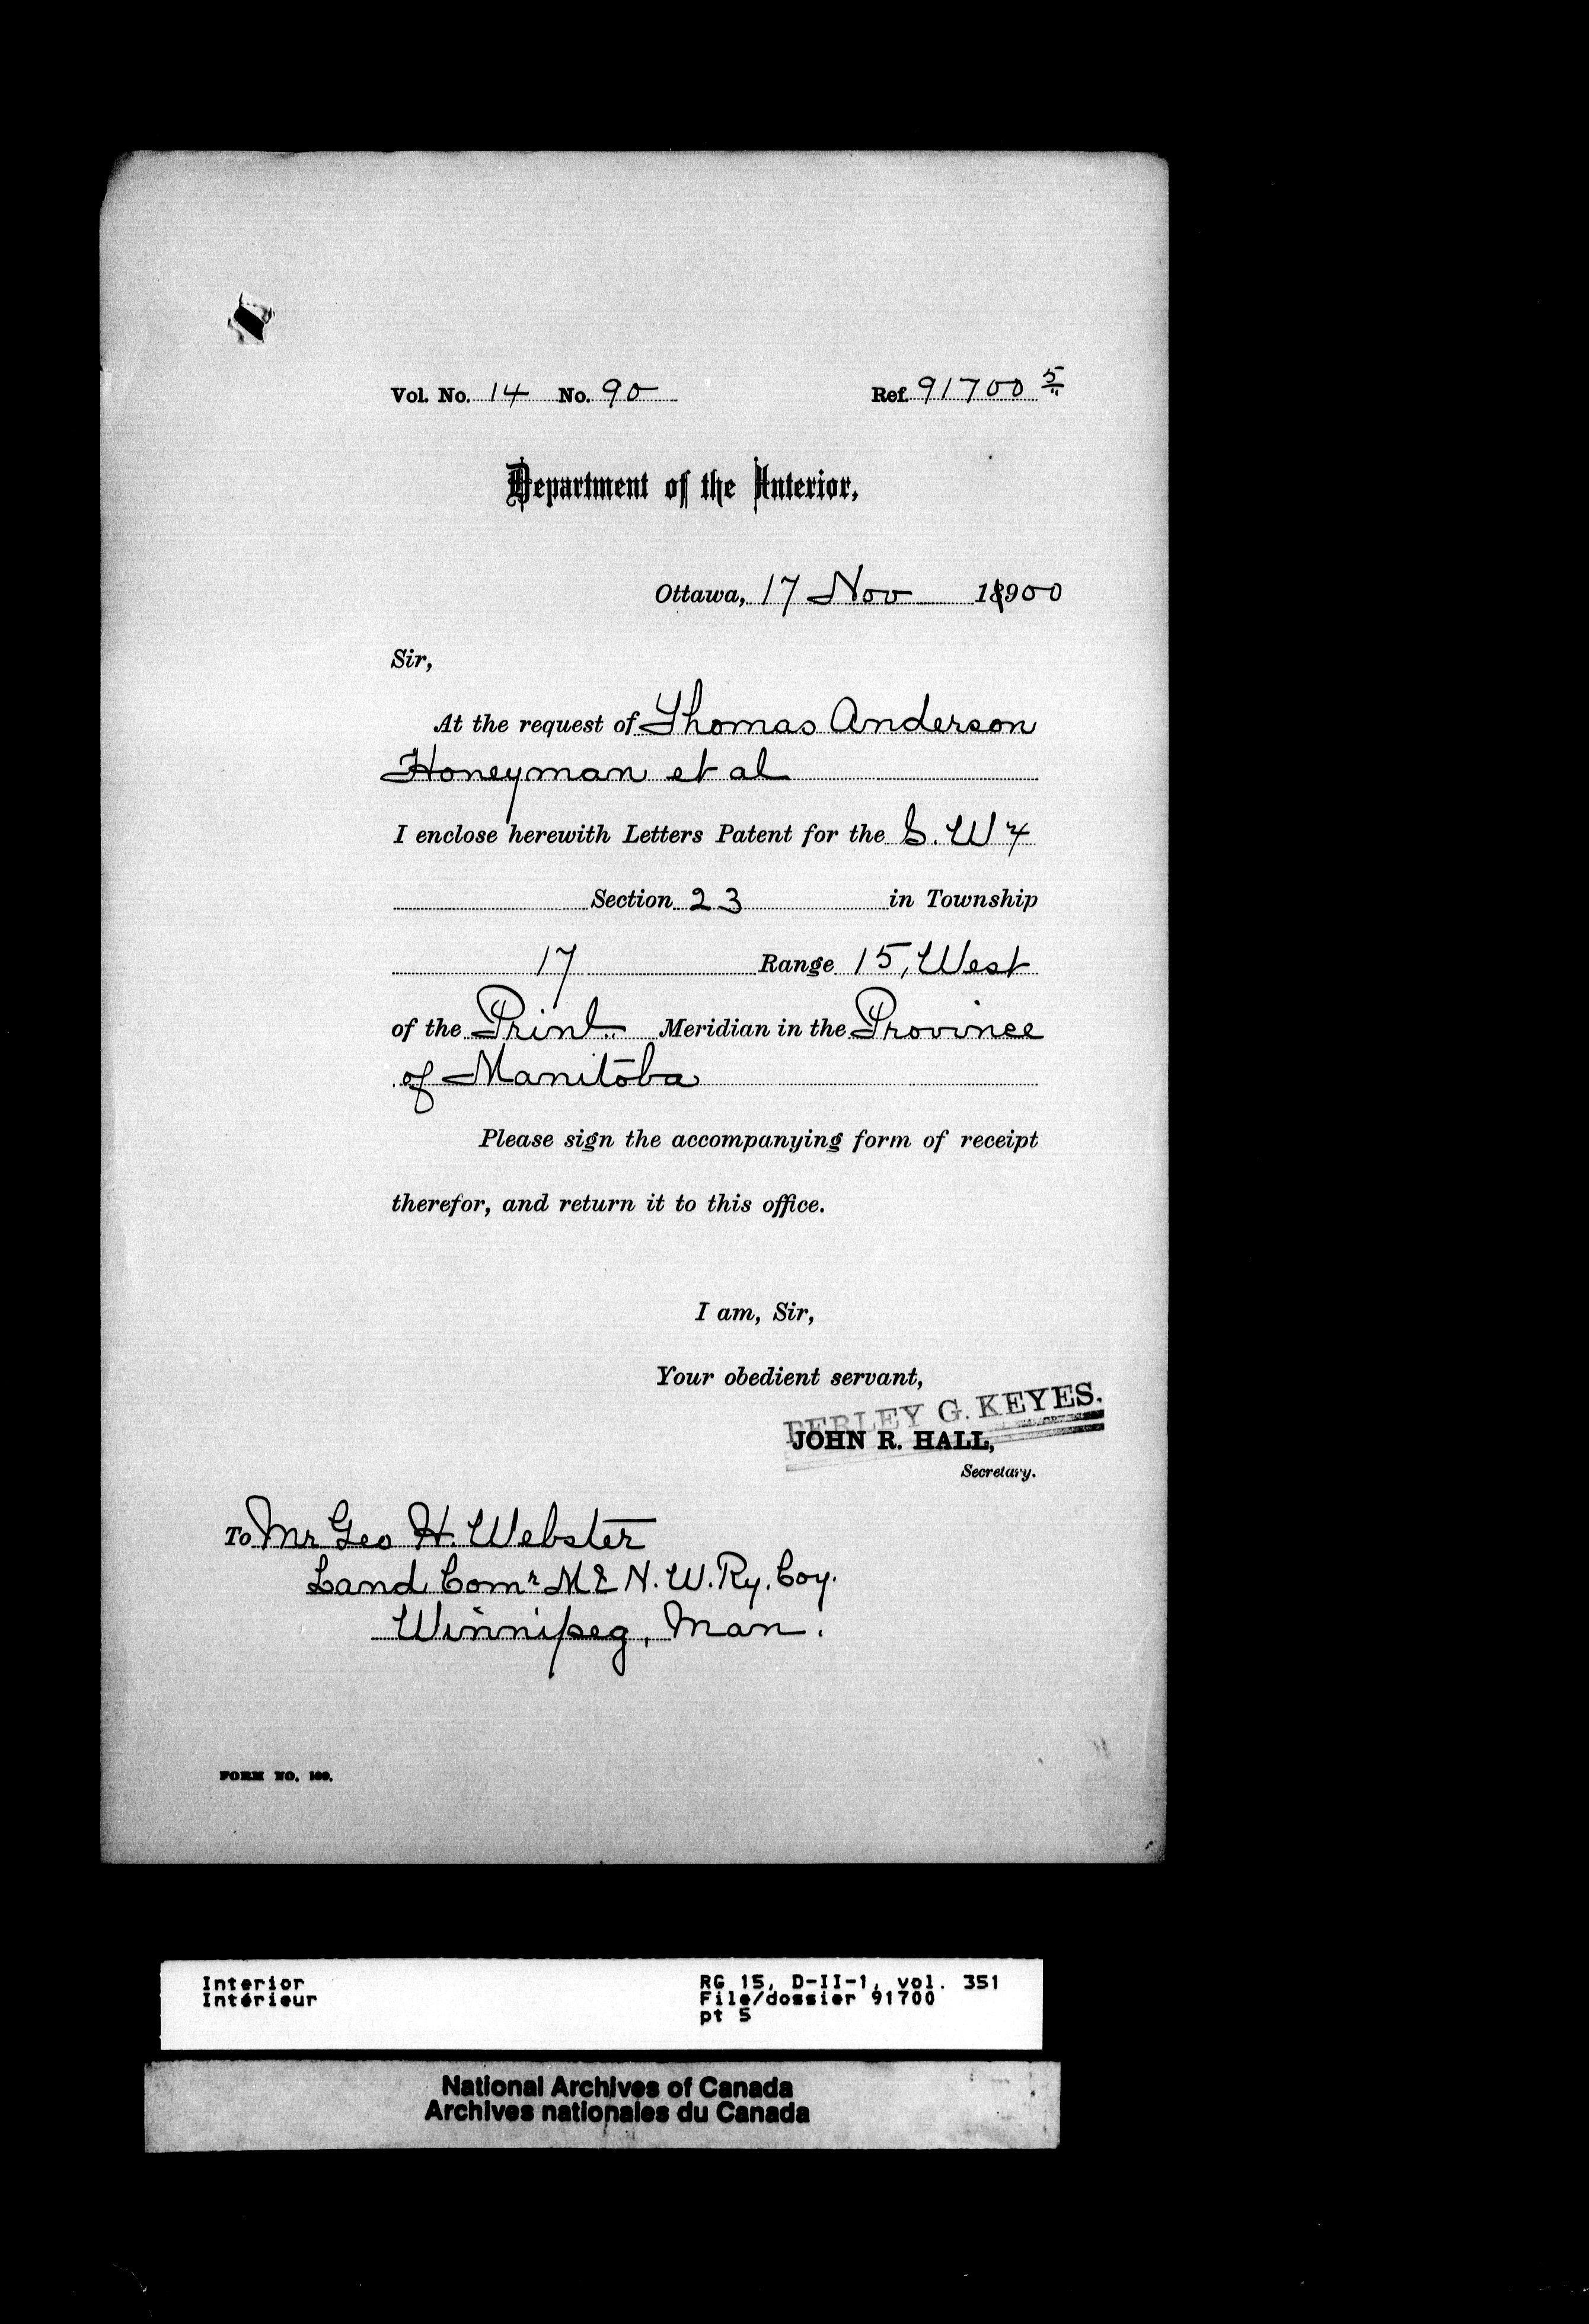 Vol. No. 14 No. 90 Ref. 91700 5
Department of the Interior,
Ottawa, 17 Nov 1900
Sir,
At the request of Thomas Anderson
Honeyman et al
I enclose herewith Letters Patent for the S. W 4
Section 23 in Township
17 Range 15, West
of the Prinl. Meridian in the Province
of Manitoba
Please sign the accompanying form of receipt
therefor, and return it to this office.
I am, Sir,
Your obedient servant,
PERLEY G. KEYES.
JOHN R. HALL,
Secretary.
To Mr Geo H. Webster
Land Comr M & N. W. Ry. Coy.
Winnipeg, Man.
FORM NO. 109.
Interior RG 15, D-II-1, vol. 351
Intérieur File/dossier 91700
pt 5
National Archives of Canada
Archives nationales du Canada